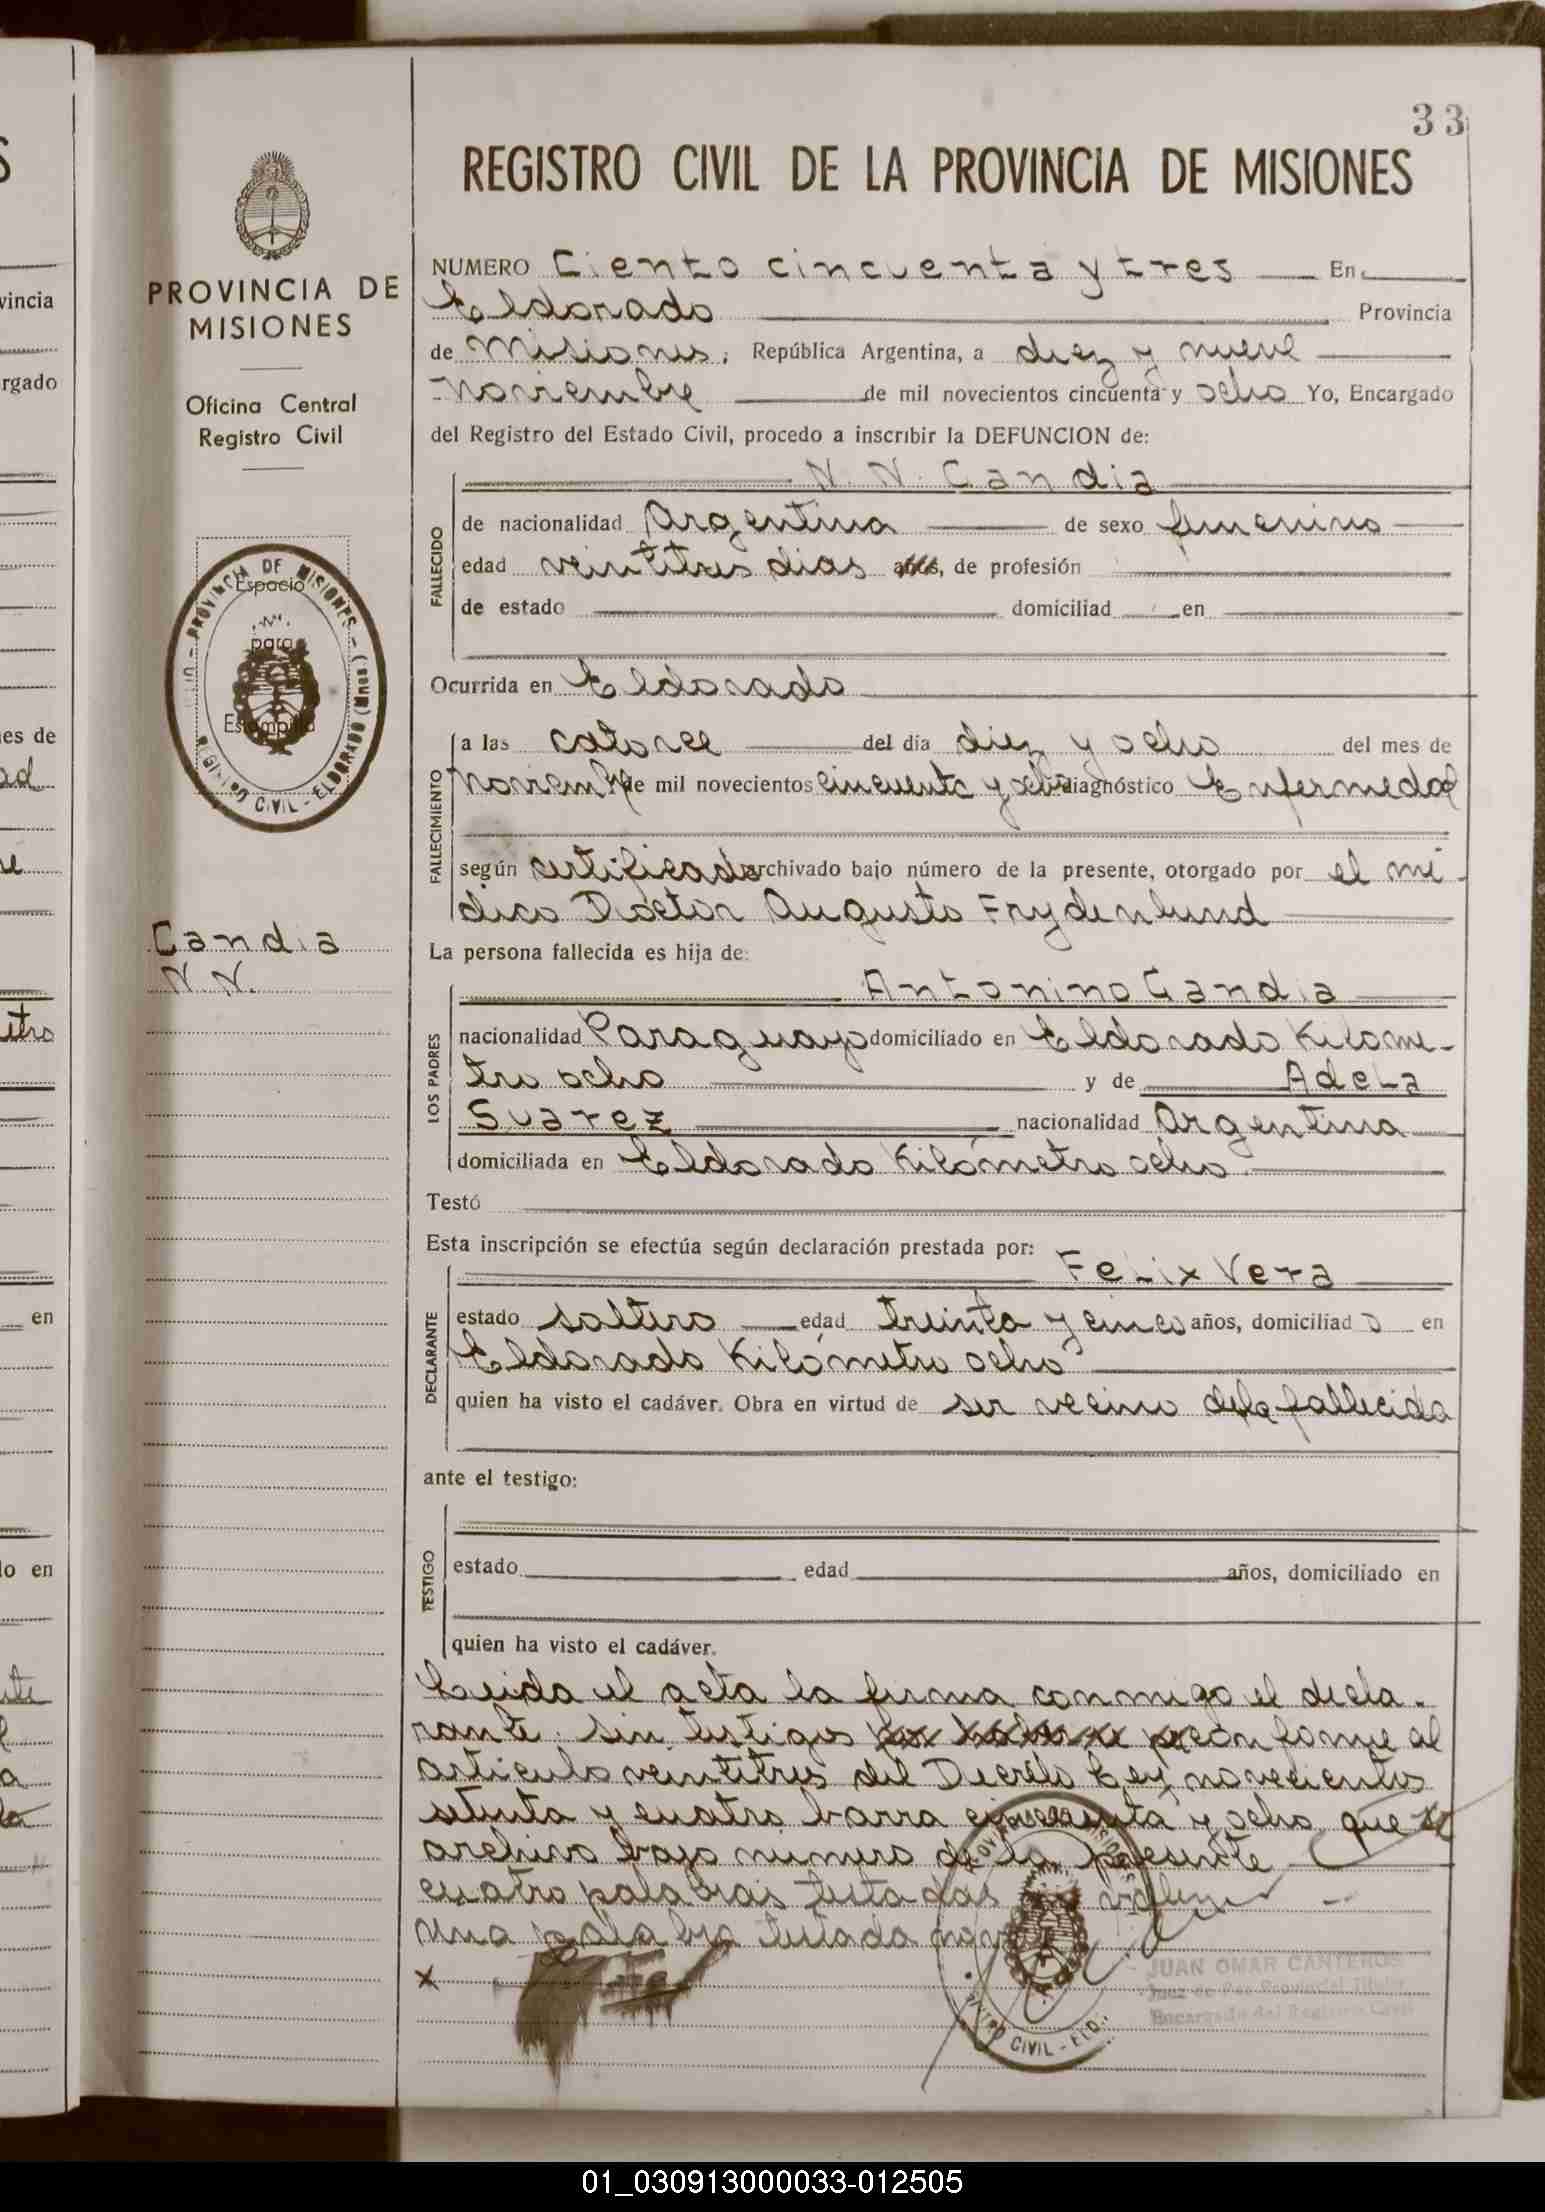 33
REGISTRO CIVIL DE LA PROVINCIA DE MISIONES
PROVINCIA DE
MISIONES
Oficina Central
Registro Civil
PROVINCIA DE MISIONES
Espacio
para
Estampilla
REGISTRO CIVIL - ELDORADO (Mnes.)
Candia
N. N.
NUMERO Ciento cincuenta y tres En
Eldorado Provincia
de Misiones, República Argentina, a diez y nueve
Noviembre de mil novecientos cincuenta y ocho Yo, Encargado
del Registro del Estado Civil, procedo a inscribir la DEFUNCION de:
FALLECIDO
N. N. Candia
de nacionalidad Argentina de sexo femenino
edad veintitres dias años, de profesión
de estado domiciliad en
Ocurrida en Eldorado
FALLECIMIENTO
a las catorce del día diez y ocho del mes de
Noviembre de mil novecientos cincuenta y ocho diagnóstico Enfermedad
según certificado archivado bajo número de la presente, otorgado por el mé-
dico Doctor Augusto Frydenlund
La persona fallecida es hija de:
LOS PADRES
Antonino Candia
nacionalidad Paraguayo domiciliado en Eldorado Kilome-
tro ocho y de Adela
Suarez nacionalidad Argentina
domiciliada en Eldorado Kilómetro ocho.
Testó
Esta inscripción se efectúa según declaración prestada por:
DECLARANTE
Felix Vera
estado soltero edad treinta y cinco años, domiciliado en
Eldorado Kilómetro ocho
quien ha visto el cadáver. Obra en virtud de ser vecino de la fallecida
ante el testigo:
TESTIGO
estado edad años, domiciliado en
quien ha visto el cadáver.
Leida el acta la firma conmigo el decla-
rante sin testigos conforme al
artículo veintitres del Decreto Ley novecientos
setenta y cuatro barra cincuenta y ocho que se
archiva bajo numero de la presente
cuatro palabras testadas no valen
una palabra testada no vale
x
JUAN OMAR CANTEROS
Juez de Paz Provincial Titular
Encargado del Registro Civil
01_030913000033-012505